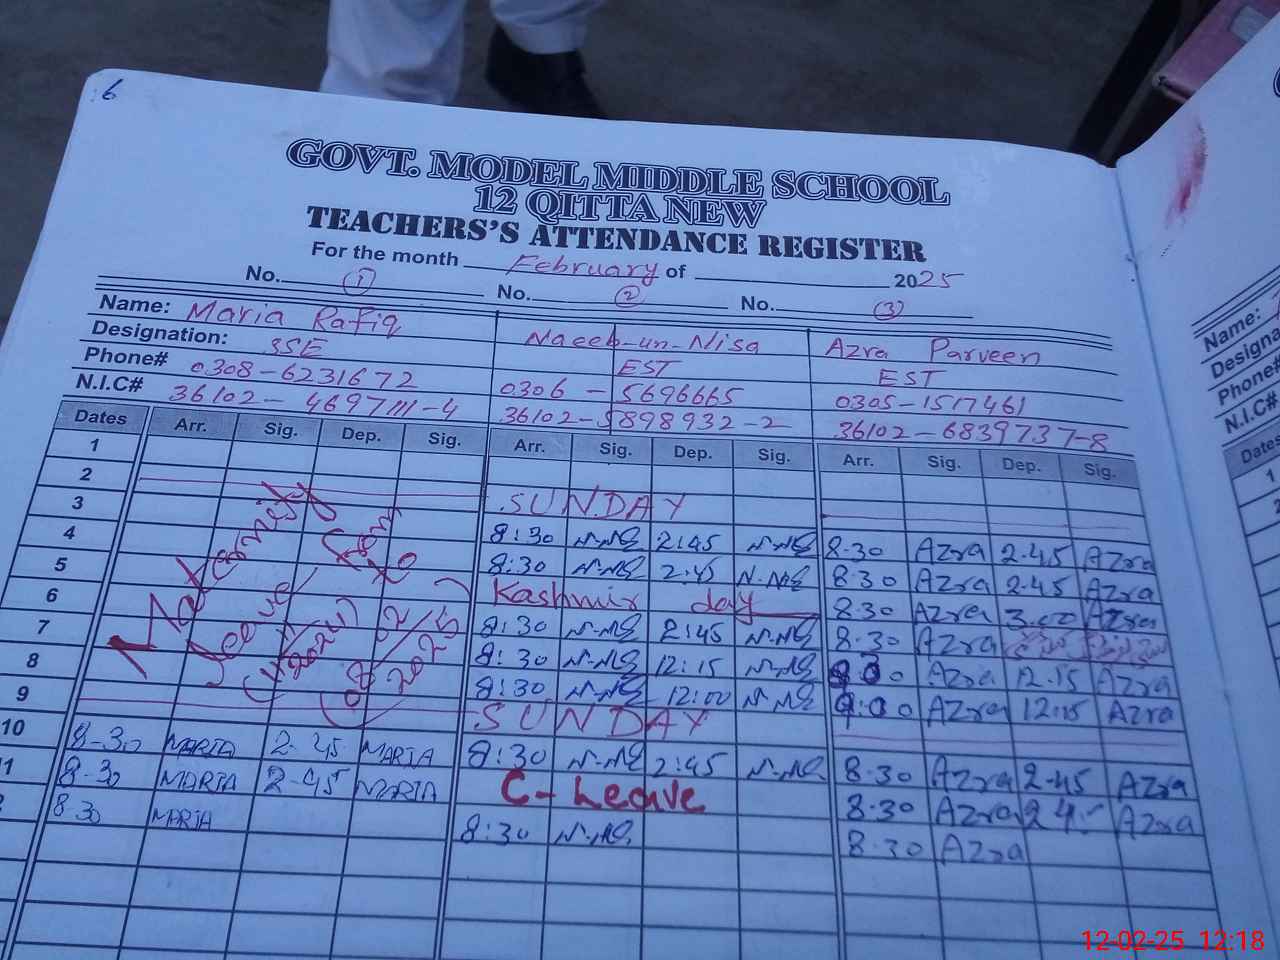 6
GOVT. MODEL MIDDLE SCHOOL
12 QITTA NEW
TEACHERS'S ATTENDANCE REGISTER
For the month February of 2025
No. 1 No. 2 No. 3
Name: Maria Rafiq Naeeb-un-Nisa Azra Parveen
Designation: SSE EST EST
Phone# 0308-6231672 0306-5696665 0305-1517461
N.I.C# 36102-4697111-4 36102-5898932-2 36102-6839737-8
Dates Arr. Sig. Dep. Sig. Arr. Sig. Dep. Sig. Arr. Sig. Dep. Sig.
1
2 SUNDAY
3 8:30 N-NS 2:45 N-NS 8-30 Azra 2-45 Azra
4 8:30 N-NS 2:45 N-NS 8-30 Azra 2-45 Azra
5 Kashmir day 8:30 Azra 3.00 Azra
6 8:30 N-NS 2:45 N-NS 8:30 Azra
7 8:30 N-NS 12:15 N-NS Azra 12.15 Azra
8 8:30 N-NS 12:00 N-NS 9:00 Azra 12:15 Azra
9 SUNDAY
10 8-30 MARIA 2-45 MARIA 8:30 N-NS 2:45 N-NS 8.30 Azra 2-45 Azra
8-30 MARIA 2-45 MARIA C-Leave 8.30 Azra Azra
8-30 MARIA 8:30 N-NS 8.30 Azra
Maternity
Leave from
to
2025
12-02-25 12:18